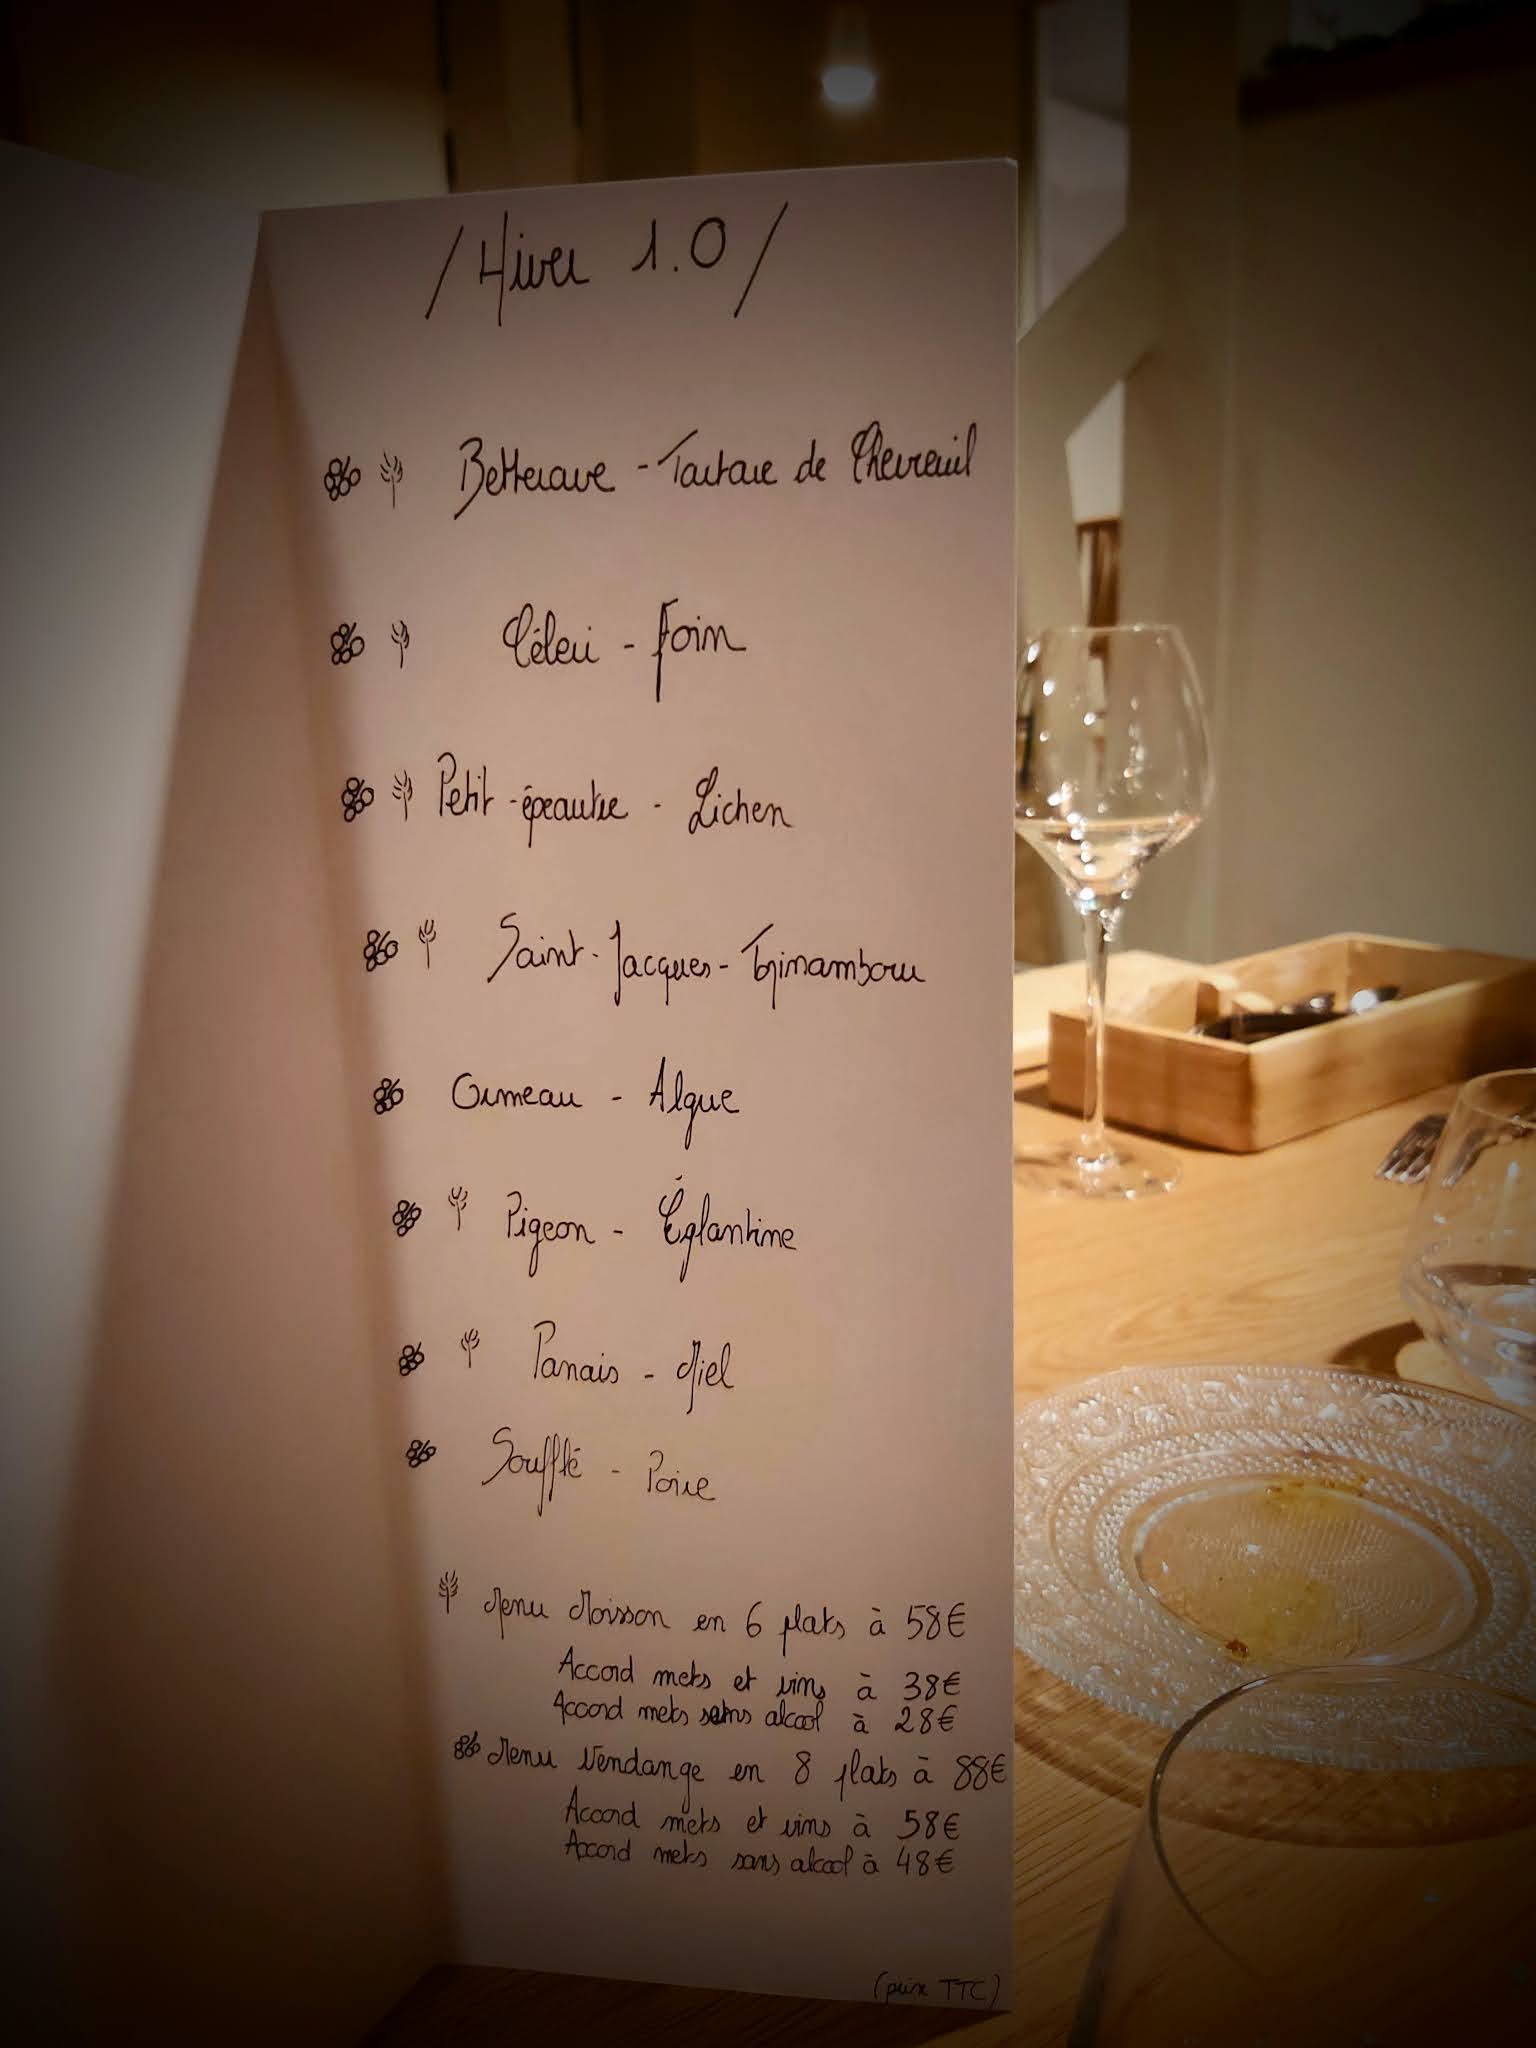 /Hiver 1.0/
Betterave - Tartare de Chevreuil
Céleri - Foin
Petit-épeautre - Lichen
Saint-Jacques - Topinambour
Ormeau - Algue
Pigeon - Églantine
Panais - Miel
Soufflé - Poire
Menu Moisson en 6 plats à 58€
Accord mets et vins à 38€
Accord mets sans alcool à 28€
Menu Vendange en 8 plats à 88€
Accord mets et vins à 58€
Accord mets sans alcool à 48€
(prix TTC)